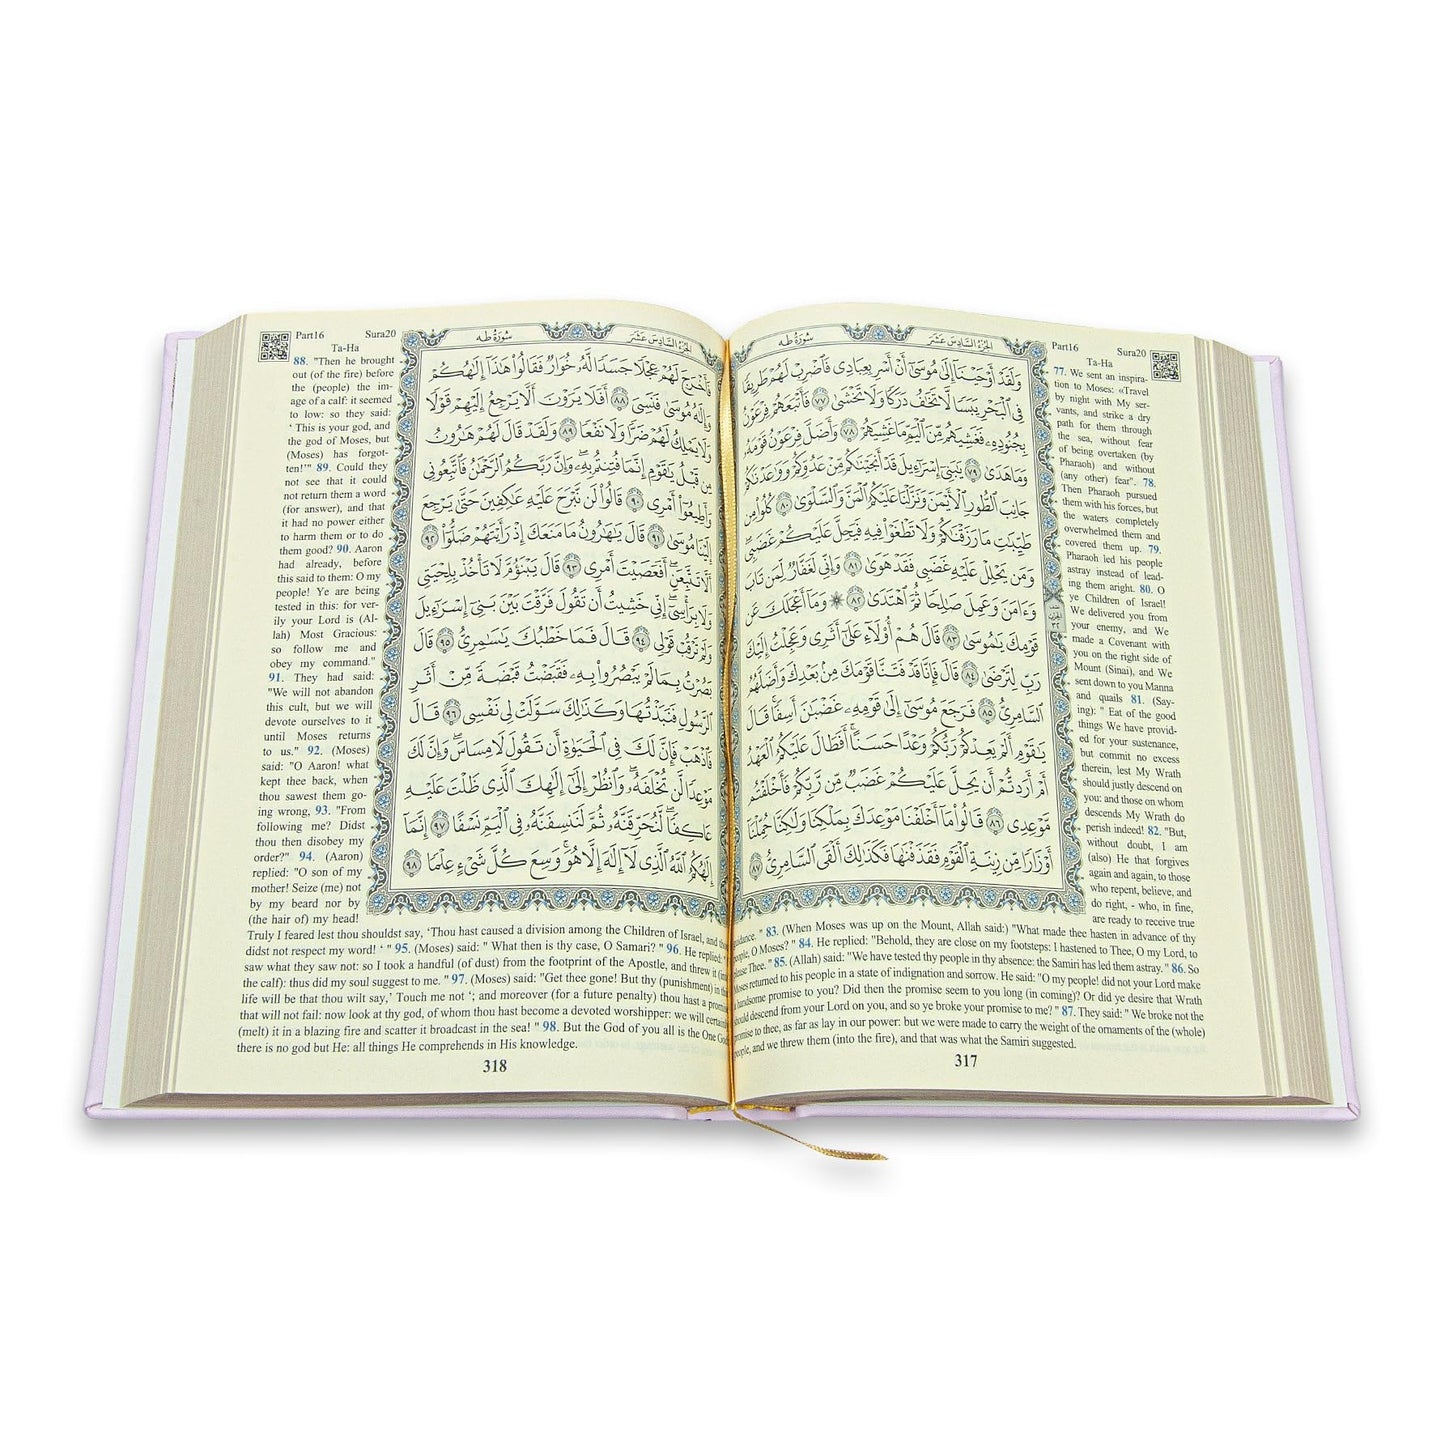 الجزء السادس عشر
سورة طه
Part16
Sura20
Ta-Ha
وَلَقَدْ أَوْحَيْنَا إِلَىٰ مُوسَىٰ أَنْ أَسْرِ بِعِبَادِي فَاضْرِبْ لَهُمْ طَرِيقًا
فِي الْبَحْرِ يَبَسًا لَا تَخَافُ دَرَكًا وَلَا تَخْشَىٰ ٧٧ فَأَتْبَعَهُمْ فِرْعَوْنُ
بِجُنُودِهِ فَغَشِيَهُم مِّنَ الْيَمِّ مَا غَشِيَهُمْ ٧٨ وَأَضَلَّ فِرْعَوْنُ قَوْمَهُ
وَمَا هَدَىٰ ٧٩ يَٰبَنِي إِسْرَٰءِيلَ قَدْ أَنجَيْنَٰكُم مِّنْ عَدُوِّكُمْ وَوَٰعَدْنَٰكُمْ
جَانِبَ الطُّورِ الْأَيْمَنَ وَنَزَّلْنَا عَلَيْكُمُ الْمَنَّ وَالسَّلْوَىٰ ٨٠ كُلُوا مِن
طَيِّبَٰتِ مَا رَزَقْنَٰكُمْ وَلَا تَطْغَوْا فِيهِ فَيَحِلَّ عَلَيْكُمْ غَضَبِي
وَمَن يَحْلِلْ عَلَيْهِ غَضَبِي فَقَدْ هَوَىٰ ٨١ وَإِنِّي لَغَفَّارٌ لِّمَن تَابَ
وَءَامَنَ وَعَمِلَ صَٰلِحًا ثُمَّ اهْتَدَىٰ ٨٢ وَمَا أَعْجَلَكَ عَن
قَوْمِكَ يَٰمُوسَىٰ ٨٣ قَالَ هُمْ أُولَاءِ عَلَىٰ أَثَرِي وَعَجِلْتُ إِلَيْكَ
رَبِّ لِتَرْضَىٰ ٨٤ قَالَ فَإِنَّا قَدْ فَتَنَّا قَوْمَكَ مِن بَعْدِكَ وَأَضَلَّهُمُ
السَّامِرِيُّ ٨٥ فَرَجَعَ مُوسَىٰ إِلَىٰ قَوْمِهِ غَضْبَٰنَ أَسِفًا قَالَ
يَٰقَوْمِ أَلَمْ يَعِدْكُمْ رَبُّكُمْ وَعْدًا حَسَنًا أَفَطَالَ عَلَيْكُمُ الْعَهْدُ
أَمْ أَرَدتُّمْ أَن يَحِلَّ عَلَيْكُمْ غَضَبٌ مِّن رَّبِّكُمْ فَأَخْلَفْتُم
مَّوْعِدِي ٨٦ قَالُوا مَا أَخْلَفْنَا مَوْعِدَكَ بِمَلْكِنَا وَلَٰكِنَّا حُمِّلْنَا
أَوْزَارًا مِّن زِينَةِ الْقَوْمِ فَقَذَفْنَٰهَا فَكَذَٰلِكَ أَلْقَى السَّامِرِيُّ ٨٧
77. We sent an inspira-
tion to Moses: «Travel
by night with My ser-
vants, and strike a dry
path for them through
the sea, without fear
of being overtaken (by
Pharaoh) and without
(any other) fear". 78.
Then Pharaoh pursued
them with his forces, but
the waters completely
overwhelmed them and
covered them up. 79.
Pharaoh led his people
astray instead of lead-
ing them aright. 80. O
ye Children of Israel!
We delivered you from
your enemy, and We
made a Covenant with
you on the right side of
Mount (Sinai), and We
sent down to you Manna
and quails 81. (Say-
ing): " Eat of the good
things We have provid-
ed for your sustenance,
but commit no excess
therein, lest My Wrath
should justly descend on
you: and those on whom
descends My Wrath do
perish indeed! 82. "But,
without doubt, I am
(also) He that forgives
again and again, to those
who repent, believe, and
do right, - who, in fine,
are ready to receive true
guidance. " 83. (When Moses was up on the Mount, Allah said:) "What made thee hasten in advance of thy
people, O Moses? " 84. He replied: "Behold, they are close on my footsteps: I hastened to Thee, O my Lord, to
please Thee. " 85. (Allah) said: "We have tested thy people in thy absence: the Samiri has led them astray. " 86. So
Moses returned to his people in a state of indignation and sorrow. He said: "O my people! did not your Lord make
a handsome promise to you? Did then the promise seem to you long (in coming)? Or did ye desire that Wrath
should descend from your Lord on you, and so ye broke your promise to me? " 87. They said: " We broke not the
promise to thee, as far as lay in our power: but we were made to carry the weight of the ornaments of the (whole)
people, and we threw them (into the fire), and that was what the Samiri suggested.
317
الجزء السادس عشر
سورة طه
Part16
Sura20
Ta-Ha
فَأَخْرَجَ لَهُمْ عِجْلًا جَسَدًا لَّهُ خُوَارٌ فَقَالُوا هَٰذَا إِلَٰهُكُمْ
وَإِلَٰهُ مُوسَىٰ فَنَسِيَ ٨٨ أَفَلَا يَرَوْنَ أَلَّا يَرْجِعُ إِلَيْهِمْ قَوْلًا
وَلَا يَمْلِكُ لَهُمْ ضَرًّا وَلَا نَفْعًا ٨٩ وَلَقَدْ قَالَ لَهُمْ هَٰرُونُ
مِن قَبْلُ يَٰقَوْمِ إِنَّمَا فُتِنتُم بِهِ وَإِنَّ رَبَّكُمُ الرَّحْمَٰنُ فَاتَّبِعُونِي
وَأَطِيعُوا أَمْرِي ٩٠ قَالُوا لَن نَّبْرَحَ عَلَيْهِ عَٰكِفِينَ حَتَّىٰ يَرْجِعَ
إِلَيْنَا مُوسَىٰ ٩١ قَالَ يَٰهَٰرُونُ مَا مَنَعَكَ إِذْ رَأَيْتَهُمْ ضَلُّوا ٩٢
أَلَّا تَتَّبِعَنِ أَفَعَصَيْتَ أَمْرِي ٩٣ قَالَ يَبْنَؤُمَّ لَا تَأْخُذْ بِلِحْيَتِي
وَلَا بِرَأْسِي إِنِّي خَشِيتُ أَن تَقُولَ فَرَّقْتَ بَيْنَ بَنِي إِسْرَٰءِيلَ
وَلَمْ تَرْقُبْ قَوْلِي ٩٤ قَالَ فَمَا خَطْبُكَ يَٰسَٰمِرِيُّ ٩٥ قَالَ
بَصُرْتُ بِمَا لَمْ يَبْصُرُوا بِهِ فَقَبَضْتُ قَبْضَةً مِّنْ أَثَرِ
الرَّسُولِ فَنَبَذْتُهَا وَكَذَٰلِكَ سَوَّلَتْ لِي نَفْسِي ٩٦ قَالَ
فَاذْهَبْ فَإِنَّ لَكَ فِي الْحَيَوٰةِ أَن تَقُولَ لَا مِسَاسَ وَإِنَّ لَكَ
مَوْعِدًا لَّن تُخْلَفَهُ وَانظُرْ إِلَىٰ إِلَٰهِكَ الَّذِي ظَلْتَ عَلَيْهِ
عَاكِفًا لَّنُحَرِّقَنَّهُ ثُمَّ لَنَنسِفَنَّهُ فِي الْيَمِّ نَسْفًا ٩٧ إِنَّمَا
إِلَٰهُكُمُ اللَّهُ الَّذِي لَا إِلَٰهَ إِلَّا هُوَ وَسِعَ كُلَّ شَيْءٍ عِلْمًا ٩٨
88. "Then he brought
out (of the fire) before
the (people) the im-
age of a calf: it seemed
to low: so they said:
‘ This is your god, and
the god of Moses, but
(Moses) has forgot-
ten!'" 89. Could they
not see that it could
not return them a word
(for answer), and that
it had no power either
to harm them or to do
them good? 90. Aaron
had already, before
this said to them: O my
people! Ye are being
tested in this: for ver-
ily your Lord is (Al-
lah) Most Gracious:
so follow me and
obey my command."
91. They had said:
"We will not abandon
this cult, but we will
devote ourselves to it
until Moses returns
to us." 92. (Moses)
said: "O Aaron! what
kept thee back, when
thou sawest them go-
ing wrong, 93. "From
following me? Didst
thou then disobey my
order?" 94. (Aaron)
replied: "O son of my
mother! Seize (me) not
by my beard nor by
(the hair of) my head!
Truly I feared lest thou shouldst say, ‘Thou hast caused a division among the Children of Israel, and thou
didst not respect my word! ‘ " 95. (Moses) said: " What then is thy case, O Samari? " 96. He replied: "
saw what they saw not: so I took a handful (of dust) from the footprint of the Apostle, and threw it (into
the calf): thus did my soul suggest to me. " 97. (Moses) said: "Get thee gone! But thy (punishment) in this
life will be that thou wilt say,’ Touch me not ‘; and moreover (for a future penalty) thou hast a promise
that will not fail: now look at thy god, of whom thou hast become a devoted worshipper: we will certainly
(melt) it in a blazing fire and scatter it broadcast in the sea! " 98. But the God of you all is the One God
there is no god but He: all things He comprehends in His knowledge.
318